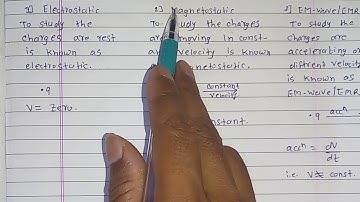 1] Electrostatic
To study the
charges are rest
is known as
electrostatic.
•q
V= Zero.
2] Magnetostatic
To study the charges
are moving in const-
velocity is known
magnetostatic.
constant
velocity
constant.
3] EM-Wave/EMR
To study the
charges are
accelerating or
different velocity
is known as
EM-Wave/EMR
•q accⁿ
accⁿ = dV
dt
i.e. V≠ const.